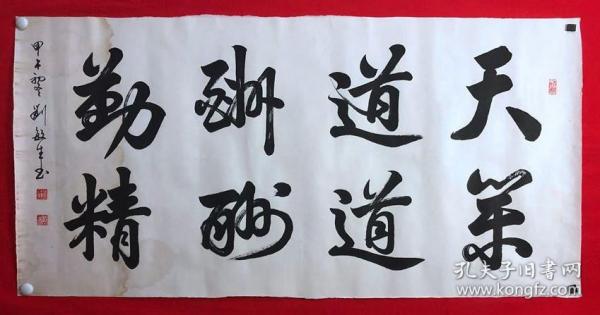 天道酬勤
業道酬精
甲午 劉敏生书
孔夫子旧书网
www.kongfz.com